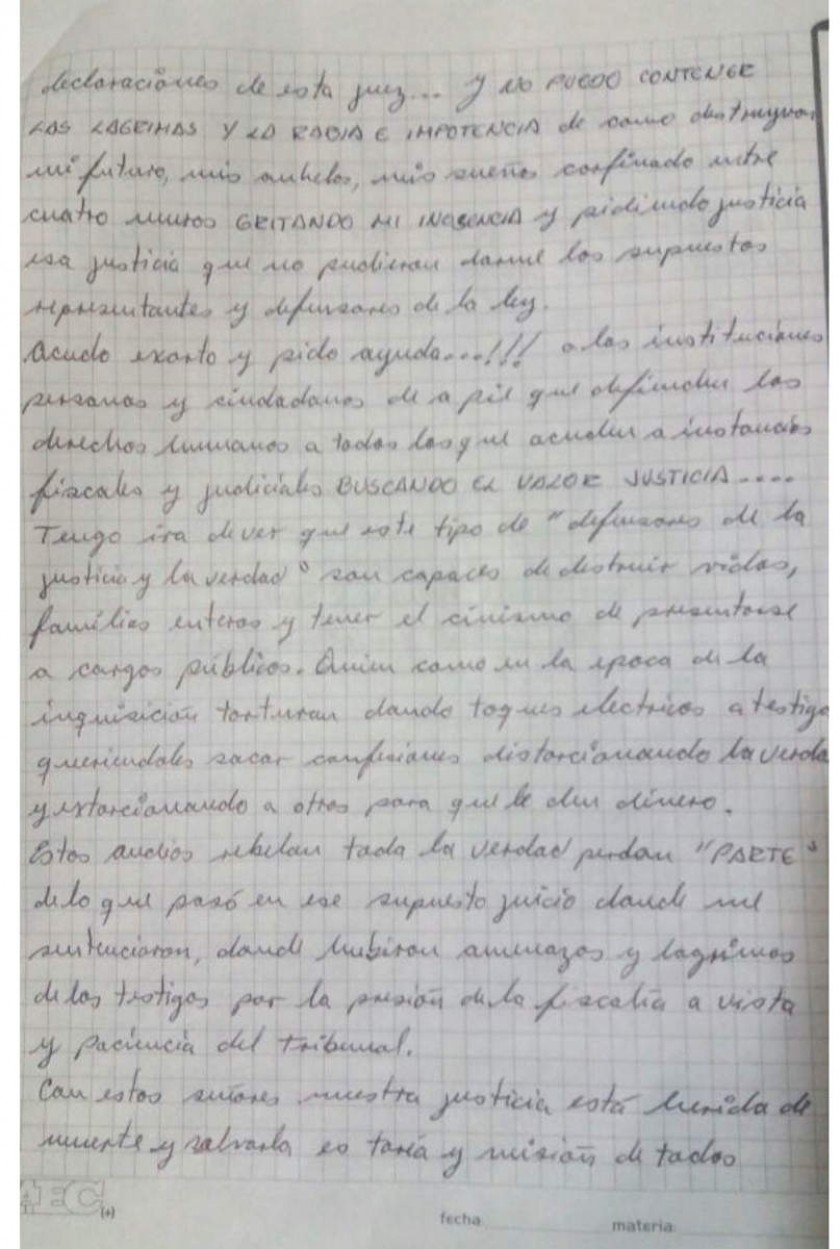 declaraciones de esta juez... y NO PUEDO CONTENER
LAS LAGRIMAS Y LA RABIA E IMPOTENCIA de como destruyeron
mi futuro, mis anhelos, mis sueños confinado entre
cuatro muros GRITANDO MI INOSENCIA y pidiendo justicia
esa justicia que no pudieron darme los supuestos
representantes y defensores de la ley.
Acudo exorto y pido ayuda...!!! a las instituciones
personas y ciudadanos de a pie que defienden los
derechos humanos a todos los que acuden a instancias
fiscales y judiciales BUSCANDO EL VALOR JUSTICIA....
Tengo ira de ver que este tipo de "defensores de la
justicia y la verdad" son capaces de destruir vidas,
familias enteras y tener el cinismo de presentarse
a cargos públicos. Quien como en la epoca de la
inquisición torturan dando toques electricos a testigo
queriendoles sacar confesiones distorcionando la verda
y extorcionando a otros para que le den dinero.
Estos audios rebelan toda la verdad perdon "PARTE"
de lo que pasó en ese supuesto juicio donde me
sentenciaron, donde hubieron amenazas y lagrimas
de los testigos por la presión de la fiscalia a vista
y paciencia del tribunal.
Con estos señores nuestra justicia está herida de
muerte y salvarla es tarea y misión de todos
AEC (+)
fecha: materia: